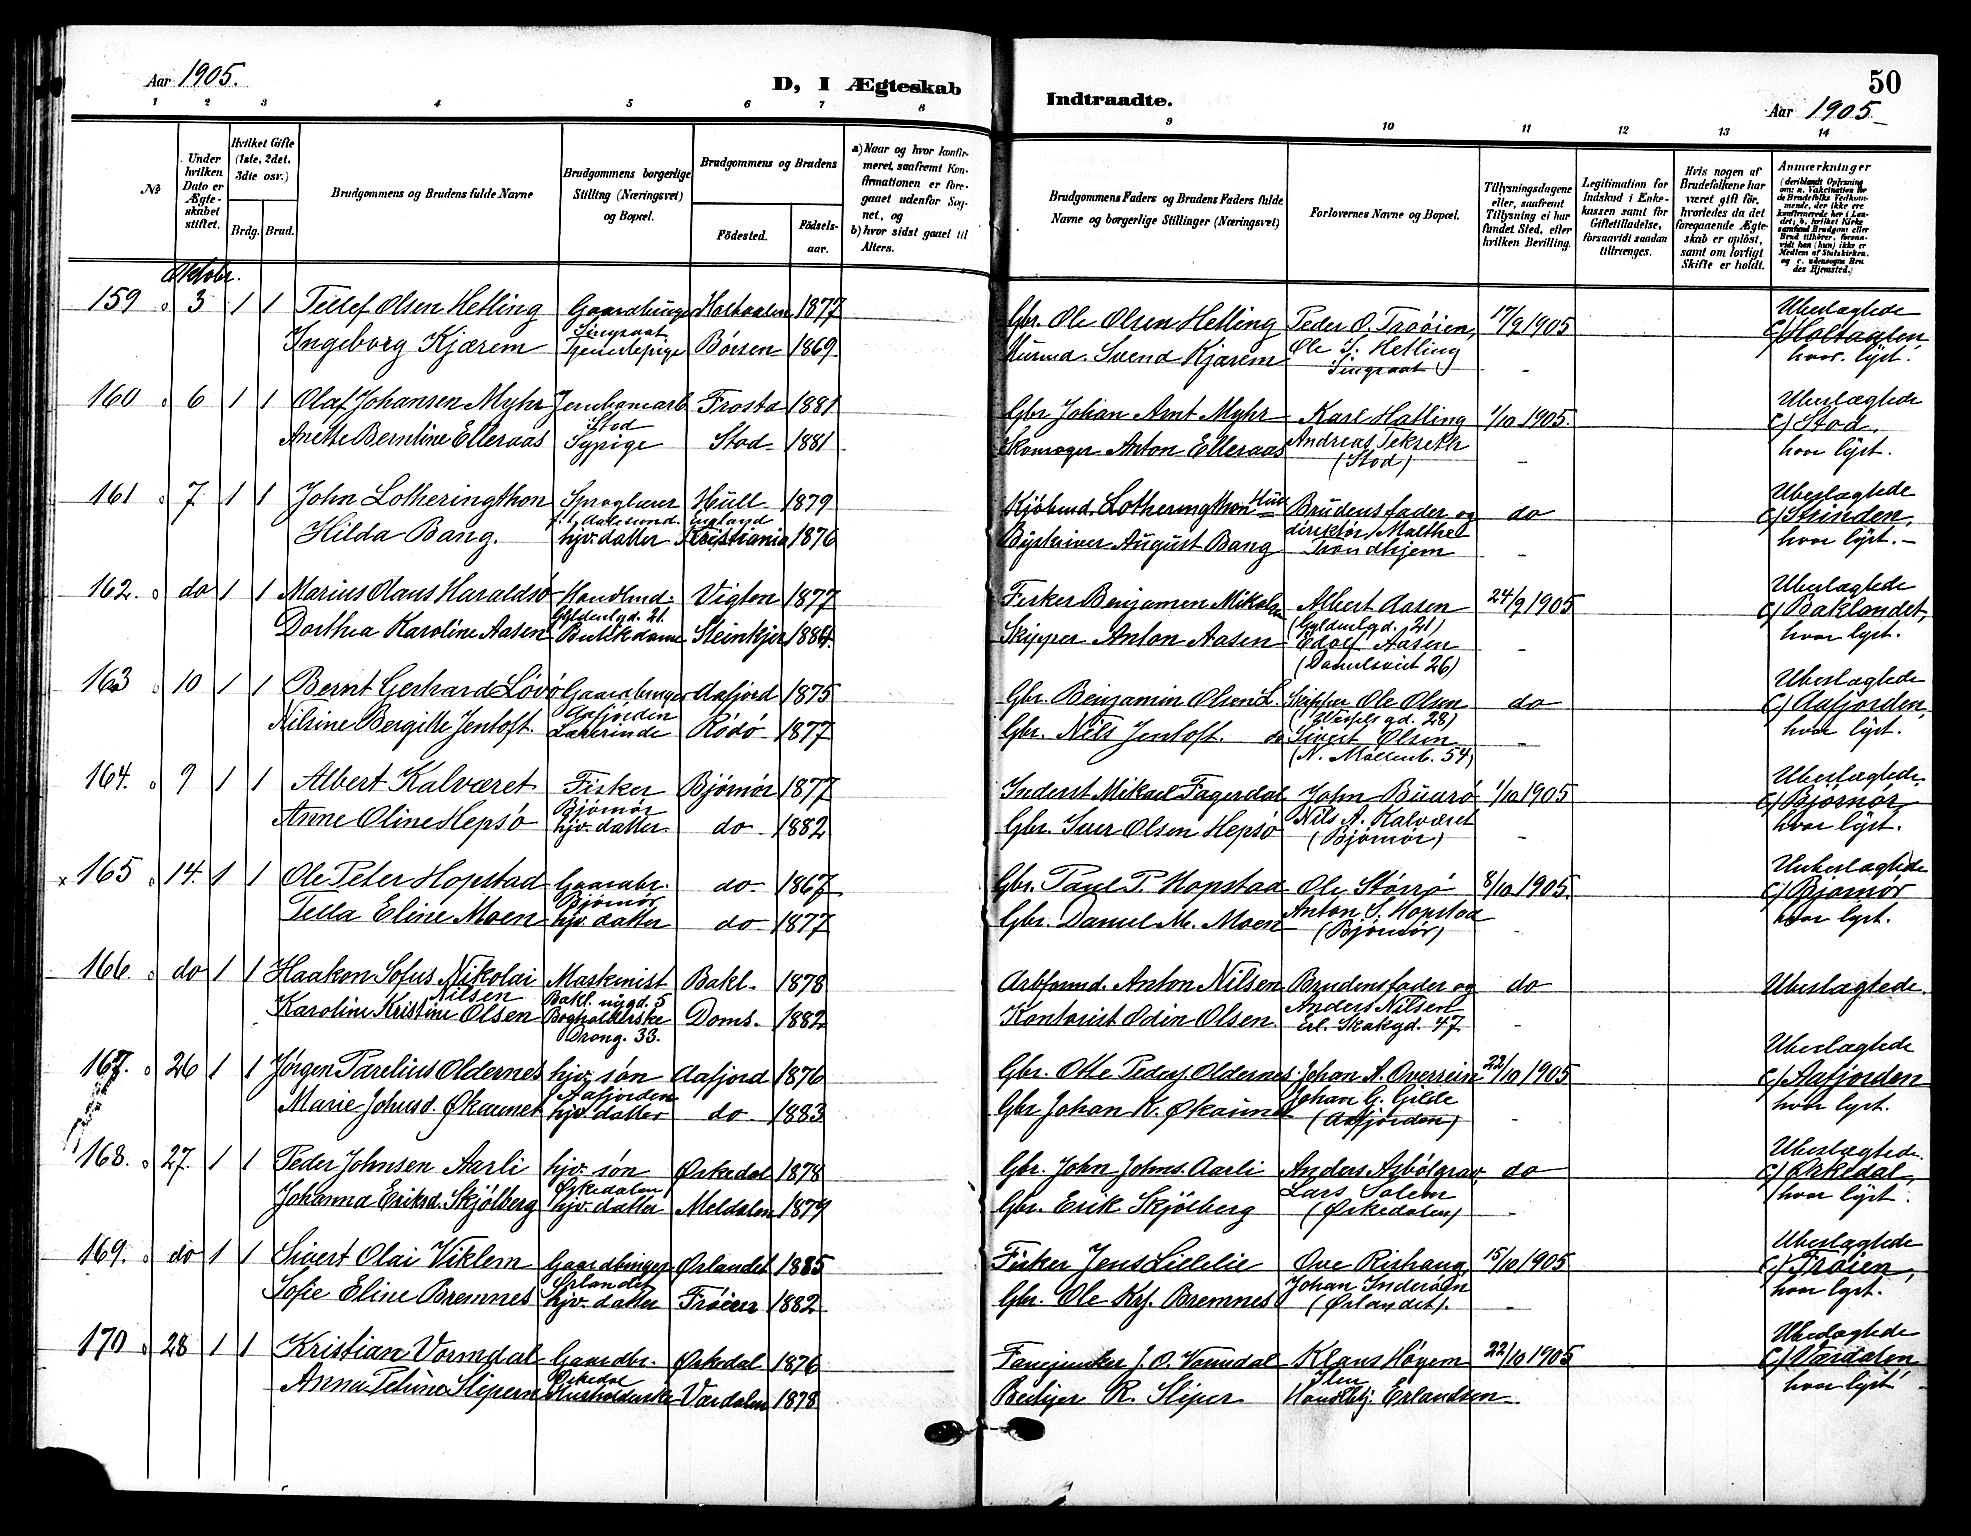 Aar 1905.
D, I Ægteskab
Indtraadte.
50
Aar 1905
1 2 3 4 5 6 7 8 9 10 11 12 13 14
No
Under hvilken Dato er Ægteskabet stiftet.
Hvilket Gifte (1ste, 2det, 3die osv.)
Brdg. Brud.
Brudgommens og Brudens fulde Navne
Brudgommens borgerlige Stilling (Næringsvei) og Bopæl.
Brudgommens og Brudens
Fødested. Fødselsaar.
a) Naar og hvor konfirmeret, saafremt Konfirmationen er foregaaet udenfor Sognet, og
b) hvor sidst gaaet til Alters.
Brudgommens Faders og Brudens Faders fulde Navne og borgerlige Stillinger (Næringsvei)
Forlovernes Navne og Bopæl.
Tillysningsdagene eller, saafremt Tillysning ei har fundet Sted, efter hvilken Bevilling.
Legitimation for Indskud i Enkekassen samt for Giftetilladelse, forsaavidt saadan tiltrænges.
Hvis nogen af Brudefolkene har været gift før, hvorledes da det foregaaende Ægteskab er opløst, samt om lovligt Skifte er holdt.
Anmærkninger
Oktobr.
159 3 1 1 Tellef Olsen Hetling Gaardbruger Holtaalen 1877 Gbr. Ole Olsen Hetling Peder O. Trøien, 17/9 1905 Ubeslægtede
Singsaat Ole S. Hetling c/ Holtaalen,
Ingeborg Kjærem Tjenestepige Børsen 1869 Murmd. Svend Kjærem Singsaat - hvor lyst.
160 6 1 1 Olaf Johansen Myhr Jernbanearb Frosta 1881 Gbr Johan Arnt Myhr Karl Hatling 1/10 1905. Ubeslægtede
Stod Andreas c/ Stod,
Anette Berntine Elleraas Sypige Stod 1881 Skomager Anton Elleraas (Stod) - hvor lyst.
161 7 1 1 John Lotheringthon Sproglærer Hull 1879 Kjøbmd. Lotheringthon Hull Brudens fader og do Ubeslægtede
England direktør Malthe c/ Strinden,
Hilda Bang. hjv. datter Kristiania 1876 Byskriver August Bang Trondhjem - hvor lyst. -
162. do 1 1 Marius Olaus Haraldsø Handlmd. Vigten 1877 Fisker Benjamin Albert Aasen 24/9 1905 Ubeslægtede
Gyldenlgd. 21 (Gyldenlgd. 21) c/ Baklandet,
Dorthea Karoline Aasen Butikdame Steinkjer 1884. Skipper Anton Aasen Edolf Aasen - hvor lyst.
(Danielsveit 26)
163 10 1 1 Bernt Gerhard Løvø Gaardbruger Aafjord 1875 Gbr. Benjamin Olsen L. Skipper Ole Olsen do Ubeslægtede
Aafjorden c/ Aafjorden,
Nilsine Bergitte Jentoft. Lærerinde Rødø 1877 Gbr. Nils Jentoft. Sivert Olsen - hvor lyst.
(N. Møllenb. 54)
164. 9 1 1 Albert Kalværet Fisker Bjørnør 1877 Inderst Mikael Fagerdal John Buarø 1/10 1905 Ubeslægtede
Bjørnør Nils A. Kalværet c/ Bjørnør
Anne Oline Hepsø hjv. datter do 1882 Gbr. Iver Olsen Hepsø (Bjørnør) - hvor lyst.
x 165 14. 1 1 Ole Peter Hopstad Gaardbr. do 1867 Gbr. Paul P. Hopstad Ole Størrø 8/10 1905. Unbeslægtede
Bjørnør Anton S. Hopstad c/ Bjørnør
Tella Eline Moen hjv datter do 1877 Gbr. Daniel M. Moen (Bjørnør) - hvor lyst.
166. do 1 1 Haakon Sofus Nikolai Maskinist Bakl. 1878 Arbformd. Anton Nilsen Brudens fader og do Ubeslægtede.
Nilsen Bakl. nygd. 5 Anders Nilsen
Karoline Kristine Olsen Bogholderske Doms. 1882 Kontorist Odin Olsen Erl. Skakgd. 47 -
Drong. 33.
167. 26 1 1 Jørgen Parelius Oldernes hjv. søn Aafjord 1876 Gbr. Otte Peders. Oldernes Johan A. Overrein 22/10 1905 Ubeslægtede
Aafjorden Johan G. Gilde c/ Aafjorden
Marie Johnsd. Økaunet hjv. datter do 1883 Gbr Johan K. Økaunet (Aafjorden) - hvor lyst.
168. 27. 1 1 Peder Johnsen Aarli hjv. søn Ørkedal 1878 Gbr. John Johns. Aarli Anders Asbølgrav do Ubeslægtede.
Ørkedalen Lars Solem c/ Ørkedal,
Johanna Eriksd. Skjølberg hjv. datter Meldalen 1879 Gbr. Erik Skjølberg (Ørkedalen) - hvor lyst.
169. do 1 1 Sivert Olai Viklem Gaardbruger Ørlandet 1885 Fisker Jens Lidelie Ove Rishaug 15/10 1905 Ubeslægtede
Ørlandet Johan Inderøen c/ Frøien,
Sofie Eline Bremnes hjv. datter Frøien 1882 Gbr. Ole Krf. Bremnes (Ørlandet). - hvor lyst.
170 28 1 1 Kristian Vormdal Gaardbr. Ørkedal 1876 Fanejunker J. O. Vormdal Klaus Høyem 22/10 1905 Ubeslægtede
Ørkedal Ilen c/ Værdalen
Anna Petrine Slipern Husholderske Værdalen 1878 R. Sliper Handlbtj. Erlandsen - hvor lyst